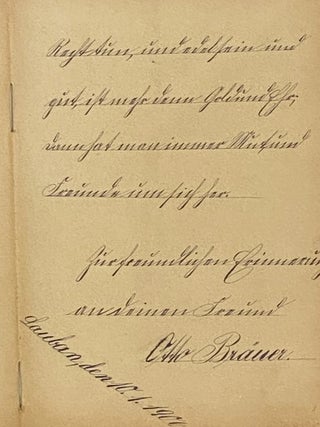 Recht tun, und edel sein und
gut, ist mehr denn Gold und Ehr;
dann hat man immer Mut und
Freunde um sich her.
Zur freundlichen Erinnerung
an deinen Freund
Otto Bräuer.
Lauban, den 10. 1. 190